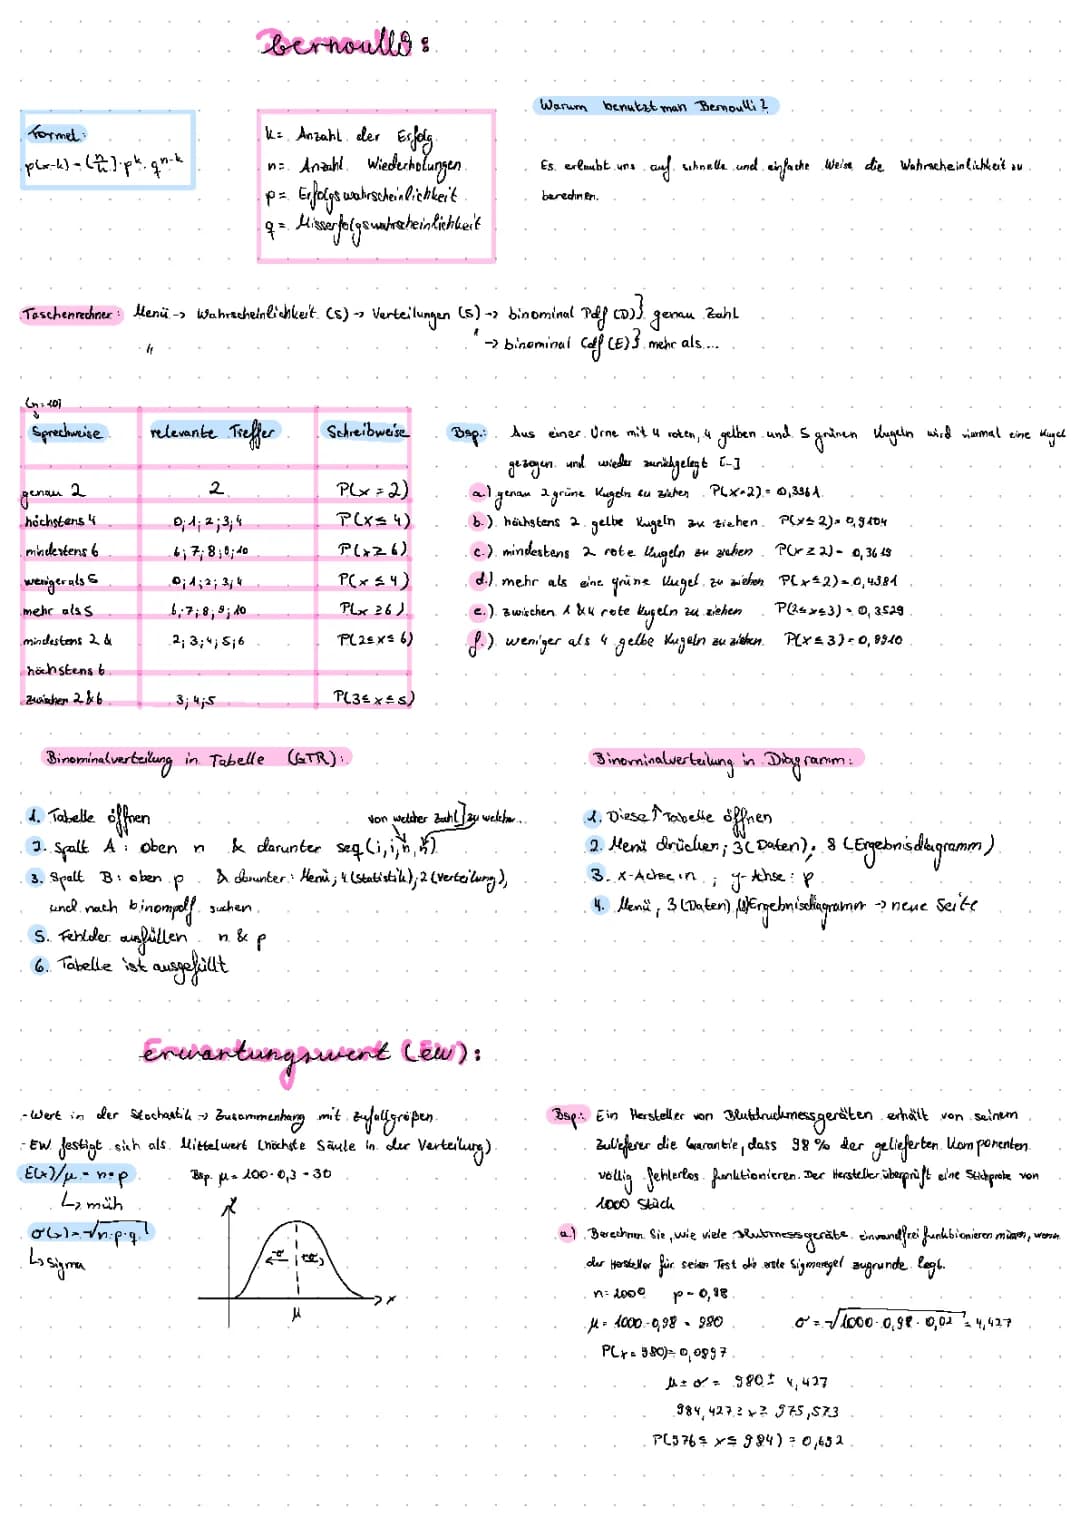 bernoulli:
Formel:
p(x=k) = (n/k) · p^k · q^n-k
k= Anzahl der Erfolg
n= Anzahl Wiederholungen
p= Erfolgswahrscheinlichkeit
q= Misserfolgswahrscheinlichkeit
Warum benutzt man Bernoulli?
Es erlaubt uns auf schnelle und einfache Weise die Wahrscheinlichkeit zu
berechnen.
Taschenrechner: Menü -> Wahrscheinlichkeit (5) -> Verteilungen (5) -> binominal Pdf (D)} genau Zahl
" " -> binominal Cdf (E)} mehr als....
(n=10)
Sprechweise relevante Treffer Schreibweise
genau 2 2 P(x=2)
höchstens 4 0;1;2;3;4 P(x≤4)
mindestens 6 6;7;8;9;10 P(x≥6)
weniger als 5 0;1;2;3;4 P(x≤4)
mehr als 5 6;7;8;9;10 P(x≥6)
mindestens 2 & 2;3;4;5;6 P(2≤x≤6)
höchstens 6
zwischen 2&6 3;4;5 P(3≤x≤5)
Bsp.: Aus einer Urne mit 4 roten, 4 gelben und 5 grünen Kugeln wird viermal eine Kugel
gezogen und wieder zurückgelegt [-]
a.) genau 2 grüne Kugeln zu ziehen P(x=2)= 0,3361
b.) höchstens 2 gelbe Kugeln zu ziehen. P(x≤2)= 0,9104
c.) mindestens 2 rote Kugeln zu ziehen P(x≥2)= 0,3619
d.) mehr als eine grüne Kugel zu ziehen P(x≥2)=0,4381
e.) zwischen 1 &4 rote Kugeln zu ziehen P(2≤x≤3)=0,3529
f.) weniger als 4 gelbe Kugeln zu ziehen. P(x≤3)=0,9910
Binominalverteilung in Tabelle (GTR):
1. Tabelle öffnen
von welcher Zahl] zu welcher..
2. Spalt A: oben n & darunter seq(i,i,n,n)
3. Spalt B: oben p & darunter: Menü, 4 (Statistik), 2 (Verteilung),
und nach binompdf suchen
5. Fehlder ausfüllen n & p
6. Tabelle ist ausgefüllt
Binominalverteilung in Diagramm:
1. Diese ↑ Tabelle öffnen
2. Menü drücken; 3 (Daten), 8 (Ergebnisdiagramm)
3. x-Achse: n ; y-Achse: p
4. Menü, 3 (Daten), Ergebnisdiagramm -> neue Seite
Erwartungswert (EW):
-Wert in der Stochastik -> Zusammenhang mit Zufallgrößen
-EW festigt sich als Mittelwert (höchste Säule in der Verteilung)
E(x)/μ = n·p Bsp. μ= 100·0,3 = 30
↳ müh
σ(x)=√n·p·q
↳ sigma
-σ +σ
μ
x
Bsp.: Ein Hersteller von Blutdruckmessgeräten erhält von seinem
Zulieferer die Garantie, dass 98% der gelieferten Komponenten
völlig fehlerlos funktionieren. Der Hersteller überprüft eine Stichprobe von
1000 Stück
a.) Berechnen Sie, wie viele Blutmessgeräte einwandfrei funktionieren müssen, wenn
der Hersteller für seinen Test die erste Sigmaregel zugrunde legt.
n=1000 p=0,98
μ= 1000·0,98 = 980 σ=√1000·0,98·0,02 = 4,427
P(x=980)= 0,0897
μ±σ= 980± 4,427
984,427≥x≥ 975,573
P(976≤ x≤ 984) = 0,692